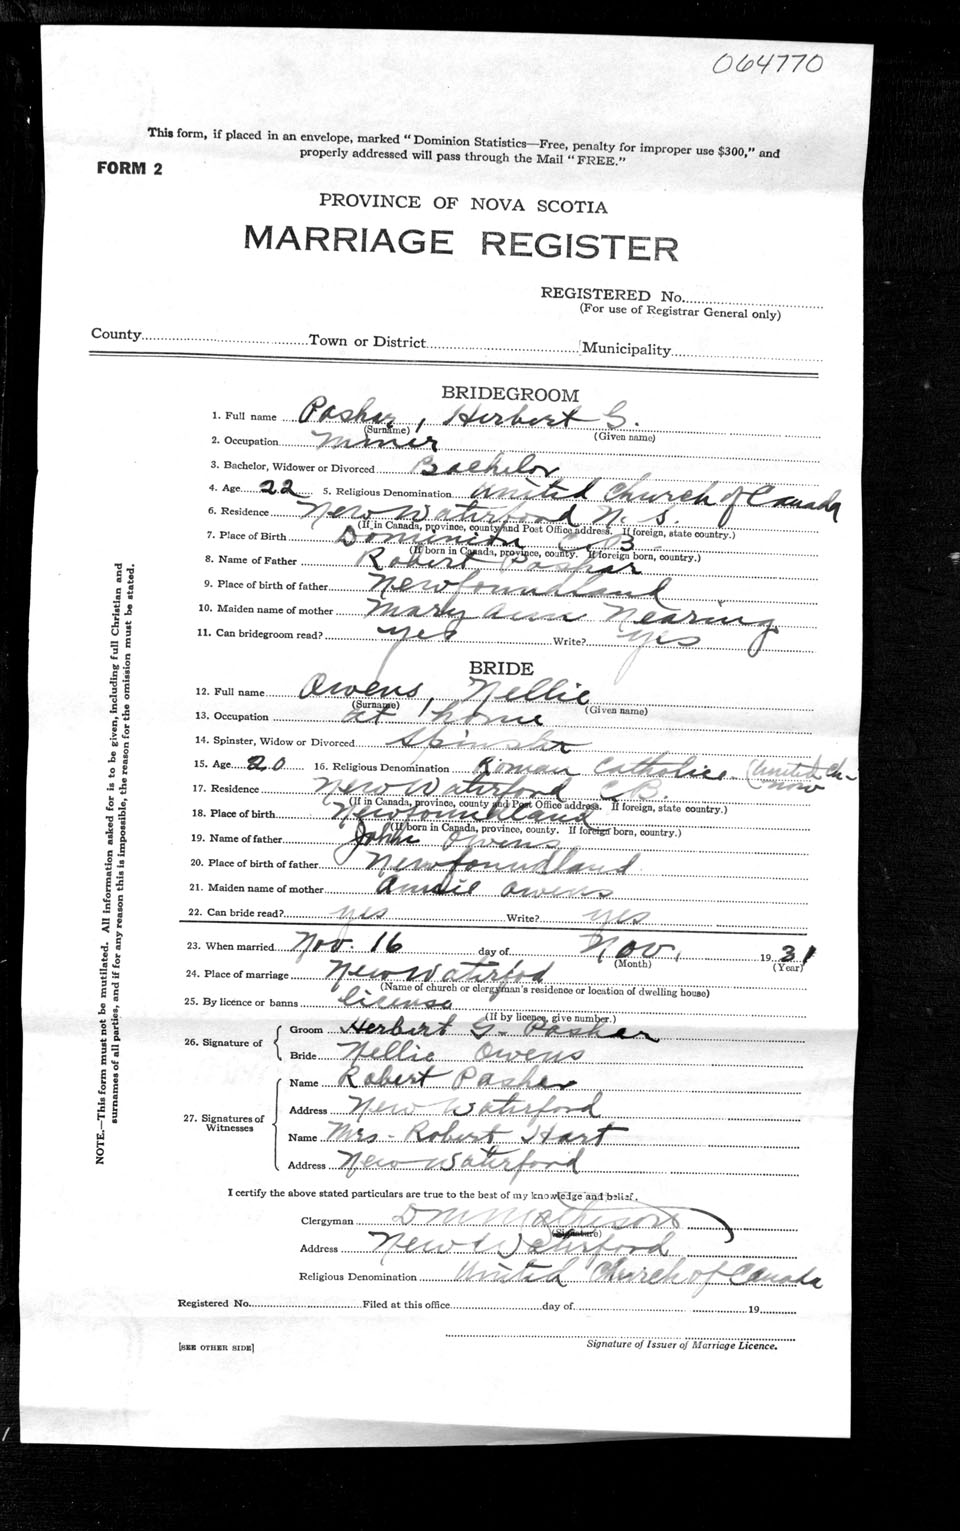 064770
This form, if placed in an envelope, marked "Dominion Statistics—Free, penalty for improper use $300," and
properly addressed will pass through the Mail "FREE."
FORM 2
PROVINCE OF NOVA SCOTIA
MARRIAGE REGISTER
REGISTERED No.
(For use of Registrar General only)
County Town or District Municipality
BRIDEGROOM
1. Full name Pasher, Herbert G.
(Surname) (Given name)
2. Occupation Miner
3. Bachelor, Widower or Divorced Bachelor
4. Age 22 5. Religious Denomination United Church of Canada
6. Residence New Waterford N. S.
(If in Canada, province, county and Post Office address. If foreign, state country.)
7. Place of Birth Dominion C B
(If born in Canada, province, county. If foreign born, country.)
8. Name of Father Robert Pasher
9. Place of birth of father Newfoundland
10. Maiden name of mother Mary Ann Nearing
11. Can bridegroom read? yes Write? yes
BRIDE
12. Full name Owens, Nellie
(Surname) (Given name)
13. Occupation at home
14. Spinster, Widow or Divorced Spinster
15. Age 20 16. Religious Denomination Roman Catholic (United Ch-
now
17. Residence New Waterford C.B.
(If in Canada, province, county and Post Office address. If foreign, state country.)
18. Place of birth Newfoundland
(If born in Canada, province, county. If foreign born, country.)
19. Name of father John Owens
20. Place of birth of father Newfoundland
21. Maiden name of mother Annie Owens
22. Can bride read? yes Write? yes
23. When married Nov. 16 day of Nov. 1931
(Month) (Year)
24. Place of marriage New Waterfod
(Name of church or clergyman's residence or location of dwelling house)
25. By licence or banns license
(If by licence, give number.)
26. Signature of Groom Herbert G. Pasher
Bride Nellie Owens
27. Signatures of Witnesses Name Robert Pasher
Address New Waterford
Name Mrs - Robert Hart
Address New Waterford
I certify the above stated particulars are true to the best of my knowledge and belief.
Clergyman D M Mathieson
(Signature)
Address New Waterford
Religious Denomination United Church of Canada
Registered No. Filed at this office day of 19
Signature of Issuer of Marriage Licence.
[SEE OTHER SIDE]
NOTE.—This form must not be mutilated. All information asked for is to be given, including full Christian and
surnames of all parties, and if for any reason this is impossible, the reason for the omission must be stated.